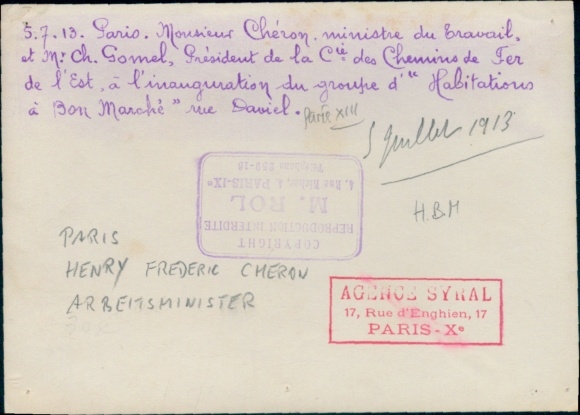 5.7.13. Paris. Monsieur Chéron, ministre du Travail,
et Mr Ch. Gomel, Président de la Cie des Chemins de Fer
de l'Est, à l'inauguration du groupe d'" Habitations
à Bon Marché " rue Daviel.
Paris XIII
5 Juillet 1913
H.B.M
COPYRIGHT
REPRODUCTION INTERDITE
M. ROL
4, Rue Richer, 4. PARIS-IXe
PARIS
HENRY FREDERIC CHERON
ARBEITSMINISTER
AGENCE SYRAL
17, Rue d'Enghien, 17
PARIS-Xe